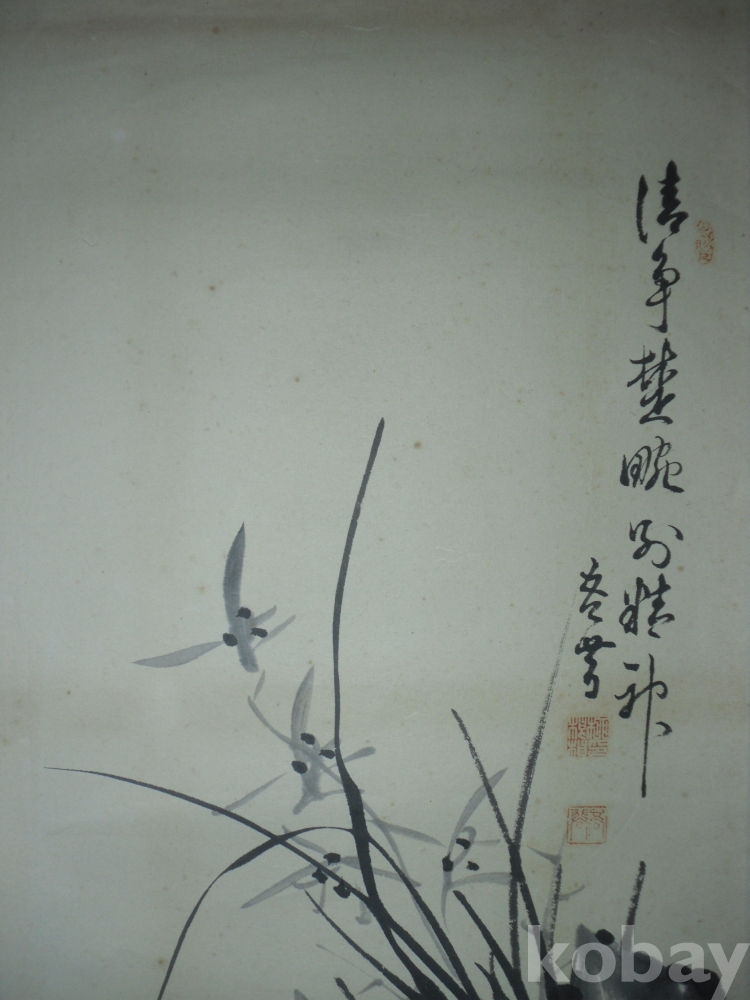 清争楚畹別精神
kobay